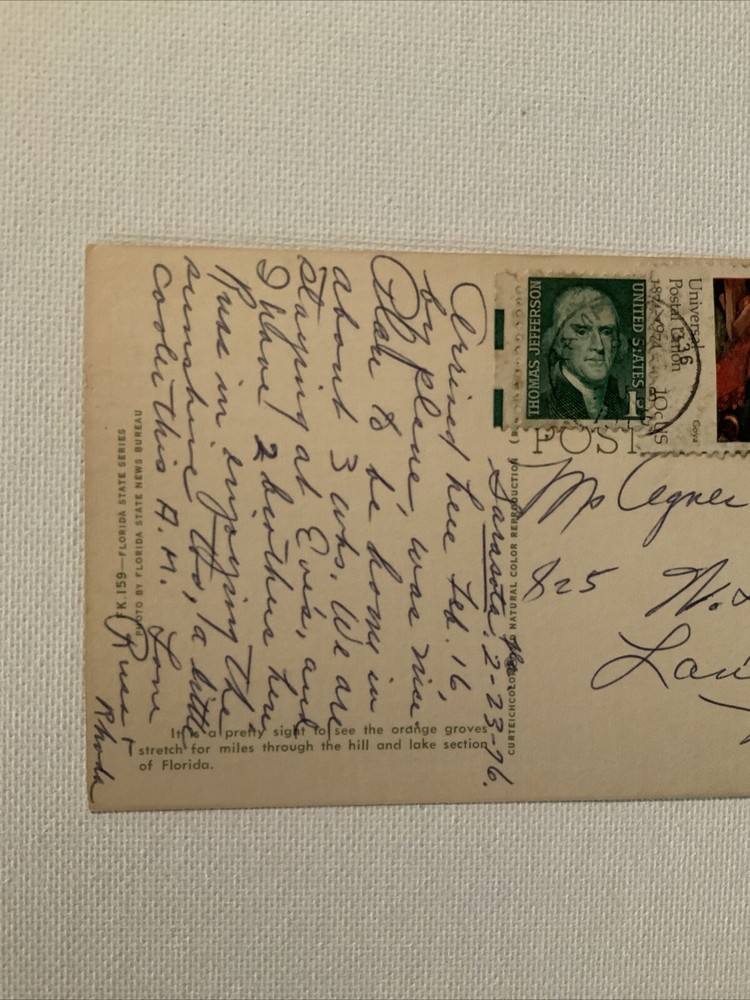 Sarasota, Fla 2-23-76.
Arrived here Feb. 16
by plane, was nice,
Plan to be home in
about 3 wks. We are
staying at Evis, and
I have 2 brothers here
Russ in enjoying the
sunshine tho, a little
cooler this A.M.
Love
Russ +
Rhoda
FK.159—FLORIDA STATE SERIES
PHOTO BY FLORIDA STATE NEWS BUREAU
It's a pretty sight to see the orange groves
stretch for miles through the hill and lake section
of Florida.
CURTEICHCOLOR NATURAL COLOR REPRODUCTION
POST
THOMAS JEFFERSON
UNITED STATES
1c
Universal
Postal Union
1874-1974
10cUS
Goya
Agnes
825 N.